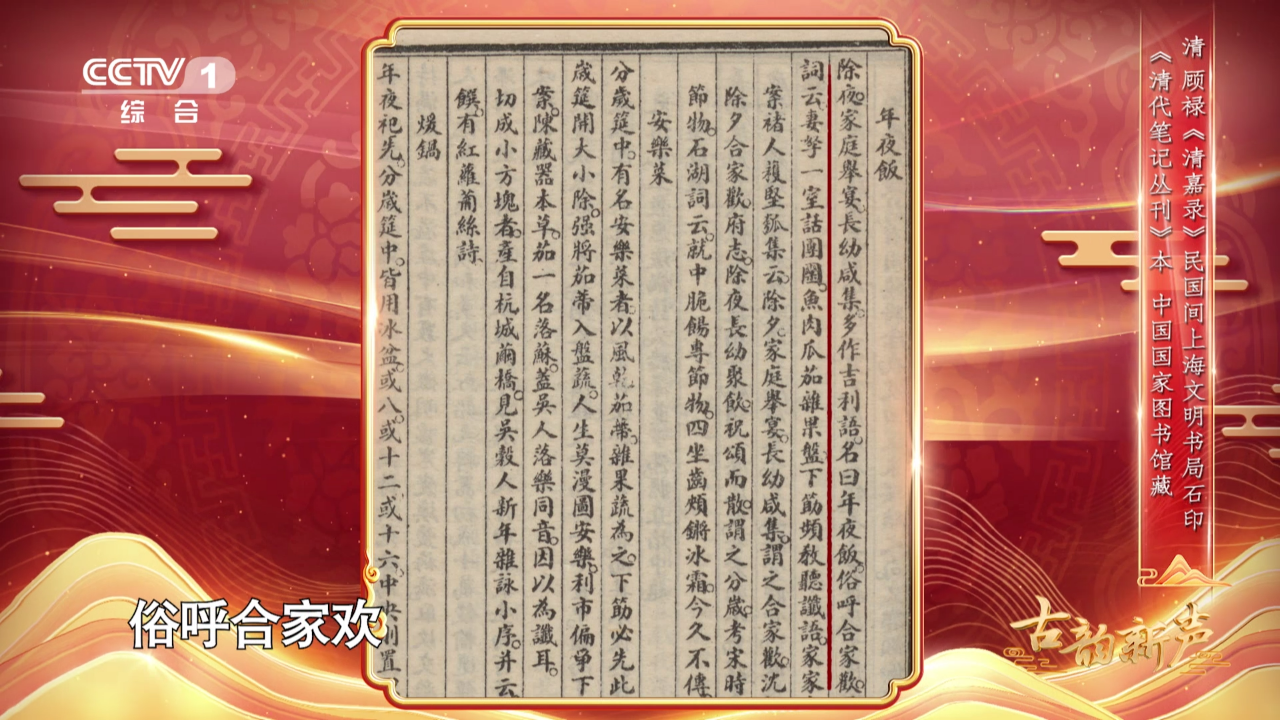 CCTV 1
综合
清 顾禄《清嘉录》民国间上海文明书局石印
《清代笔记丛刊》本 中国国家图书馆藏
年夜飯
除夜。家庭舉宴。長幼咸集。多作吉利語。名曰年夜飯。俗呼合家歡。
詞云。妻孥一室話團圞。魚肉瓜茄雜果盤。下筯頻教聽讖語。家家
案褚人穫堅瓠集云。除夕。家庭舉宴。長幼咸集。謂之合家歡。沈
除夕合家歡。府志。除夜長幼聚飲。祝頌而散。謂之分歲。考宋時
節物。石湖詞云。就中脆餳專節物。四坐齒頰鏘冰霜。今久不傳
安樂菜
分歲筵中。有名安樂菜者。以風乾茄蒂。雜果蔬為之。下筯必先此
歲筵開大小除。强將茄蒂入盤蔬。人生莫漫圖安樂。利市偏爭下
案。陳藏器本草。茄一名落蘇。蓋吳人落樂同音。因以為讖耳。
切成小方塊者。產自杭城繭橋。見吳穀人新年雜詠小序。并云
饌。有紅蘿蔔絲詩。
煖鍋
年夜祀先。分歲筵中。皆用冰盆。或八。或十二。或十六。中央則置
俗呼合家欢
古韵新声